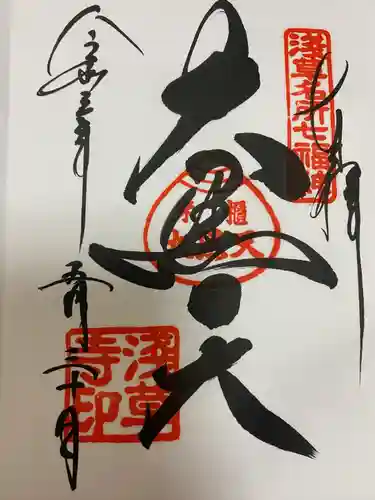 淺草名所七福神
奉拝
大黒天
令和三年
五月三十日
淺草
寺印